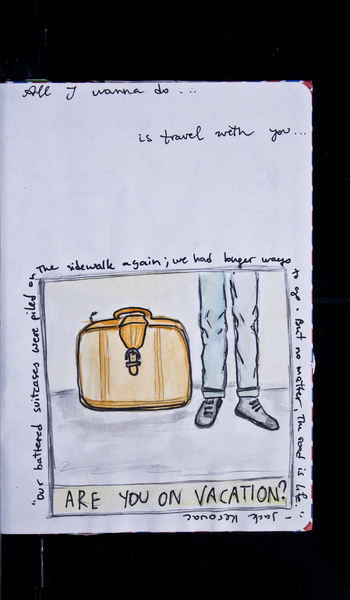 All I wanna do...
is travel with you...
"Our battered suitcases were piled on
The sidewalk again; we had longer ways
to go. But no matter, The road is life."
- Jack Kerouac
ARE YOU ON VACATION?